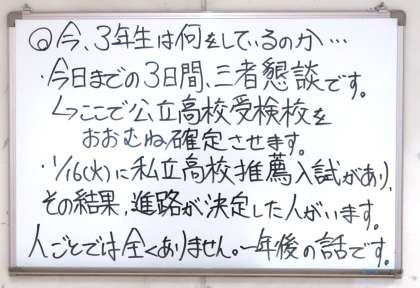 ◎今、3年生は何をしているのか…
・今日までの3日間、三者懇談です。
↳ここで公立高校受検校を
おおむね確定させます。
・1/16(火)に私立高校推薦入試があり、
その結果、進路が決定した人がいます。
人ごとでは全くありません。一年後の話です。